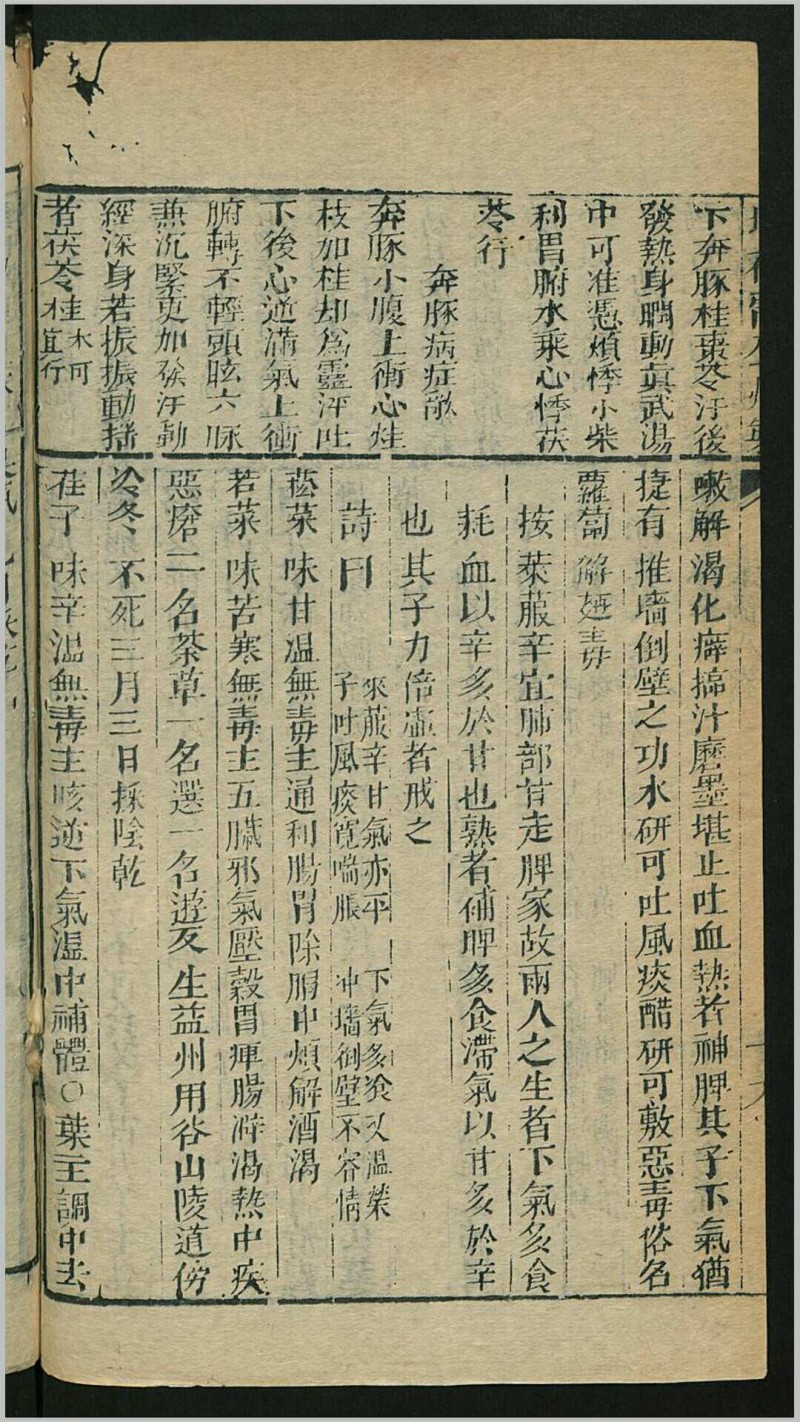 下奔豚桂棗苓汗後
發熱身瞤動真武湯
中可准憑煩悸小柴
利胃腑水乘心悸茯
苓行
奔豚病症歌
奔豚小腹上衝心炷
枝加桂却爲靈汗吐
下後心逆滿氣上衝
腑轉不輕頭眩六脉
兼沉緊更加發汗動
經深身若振振動揺
者茯苓桂木可
宜行
嗽解渴化癖搗汁磨墨堪止吐血熱者補脾其子下氣猶
捷有推墻倒壁之功水研可吐風痰醋研可敷惡毒俗名
蘿蔔解麺毒
按萊菔辛宜肺部甘走脾家故兩人之生者下氣多食
耗血以辛多於甘也熟者補脾多食滯氣以甘多於辛
也其子力倍虛者戒之
詩曰
來菔辛甘氣亦平 下氣多飡又温榮
子吐風痰寛喘脹 冲墻倒壁不容情
菘菜味甘温無毒主通利腸胃除胸中煩解酒渴
若菜味苦寒無毒主五臟邪氣壓穀胃痺腸澼渴熱中疾
惡瘡二名茶草一名選一名遊及生益州用谷山陵道傍
冷冬不死三月三日採陰乾
荏子味辛温無毒主咳逆下氣温中補體○葉主調中去